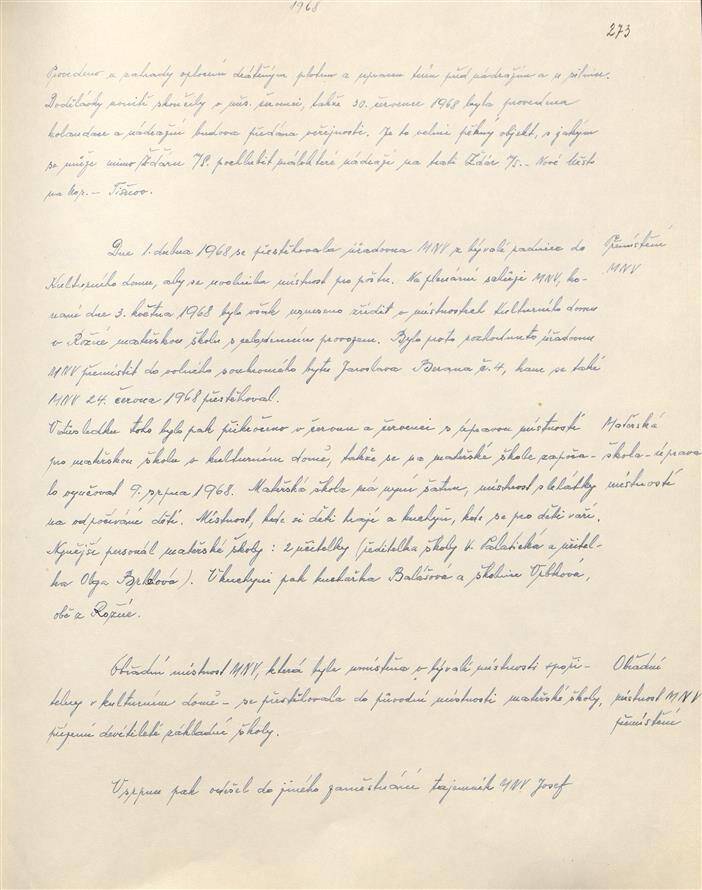 1968
273
Provedeno u zahrady oplocení drátěným plotem a úprava terén před nádražím a u silnice.
Dodělávky prací skončily v čis. červenci, takže 30. července 1968 byla provedena
kolaudace a nádražní budova předána veřejnosti. Je to velmi pěkný objekt, s jakým
se může mimo Žďáru /S. pochlubit málokteré nádraží na trati Žďár /S. - Nové Město
na Mor. - Tišnov.
Dne 1. dubna 1968 se přestěhovala úřadovna MNV z bývalé radnice do
Kulturního domu, aby se uvolnila místnost pro poštu. Na plenární schůzi MNV, ko-
nané dne 3. května 1968 bylo však usneseno zřídit v místnostech Kulturního domu
v Rožné mateřskou školu s celodenním provozem. Bylo proto rozhodnuto úřadovnu
MNV přemístit do volného soukromého bytu Jaroslava Berana č. 4, kam se také
MNV 24. června 1968 přestěhoval.
Přemístění
MNV
V důsledku toho bylo pak přikročeno v červnu a červenci s úpravou místností
pro mateřskou školu v kulturním domě, takže se na mateřské škole započa-
lo vyučovat 9. srpna 1968. Mateřská škola má nyní šatnu, místnost s lehátky
na odpočívání dětí. Místnost, kde si děti hrají a kuchyň, kde se pro děti vaří.
Nynější personál mateřské školy: 2 učitelky (ředitelka školy V. Palatická a učitel-
ka Olga). V kuchyni pak kuchařka Balášová a školnice Vrbková,
obě z Rožné.
Mateřská
škola - úprava
místností
Obřadní místnost MNV, která byla umístěna v bývalé místnosti spoři-
telny v kulturním domě - se přestěhovala do původní místnosti mateřské školy,
přízemí devítileté základní školy.
Obřadní
místnost MNV
přemístění
V srpnu pak odešel do jiného zaměstnání tajemník MNV Josef